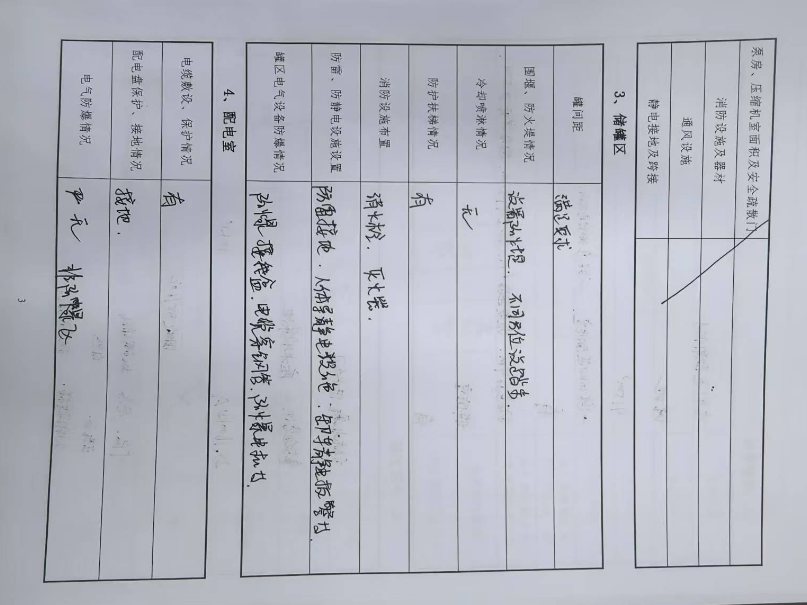 泵房、压缩机室面积及安全疏散门
消防设施及器材
通风设施
静电接地及跨接
3、储罐区
罐间距 满足要求
围堰、防火堤情况 设置防火堤、不同方位设踏步.
冷却喷淋情况 无
防护扶梯情况 有
消防设施布置 消火栓、灭火器.
防雷、防静电设施设置 防雷接地、人体导静电设施、卸车静电报警
罐区电气设备防爆情况 防爆接线盒、电缆穿钢管、防爆
4、配电室
电缆敷设、保护情况 有
配电盘保护、接地情况 接地.
电气防爆情况 无 非防爆区
3